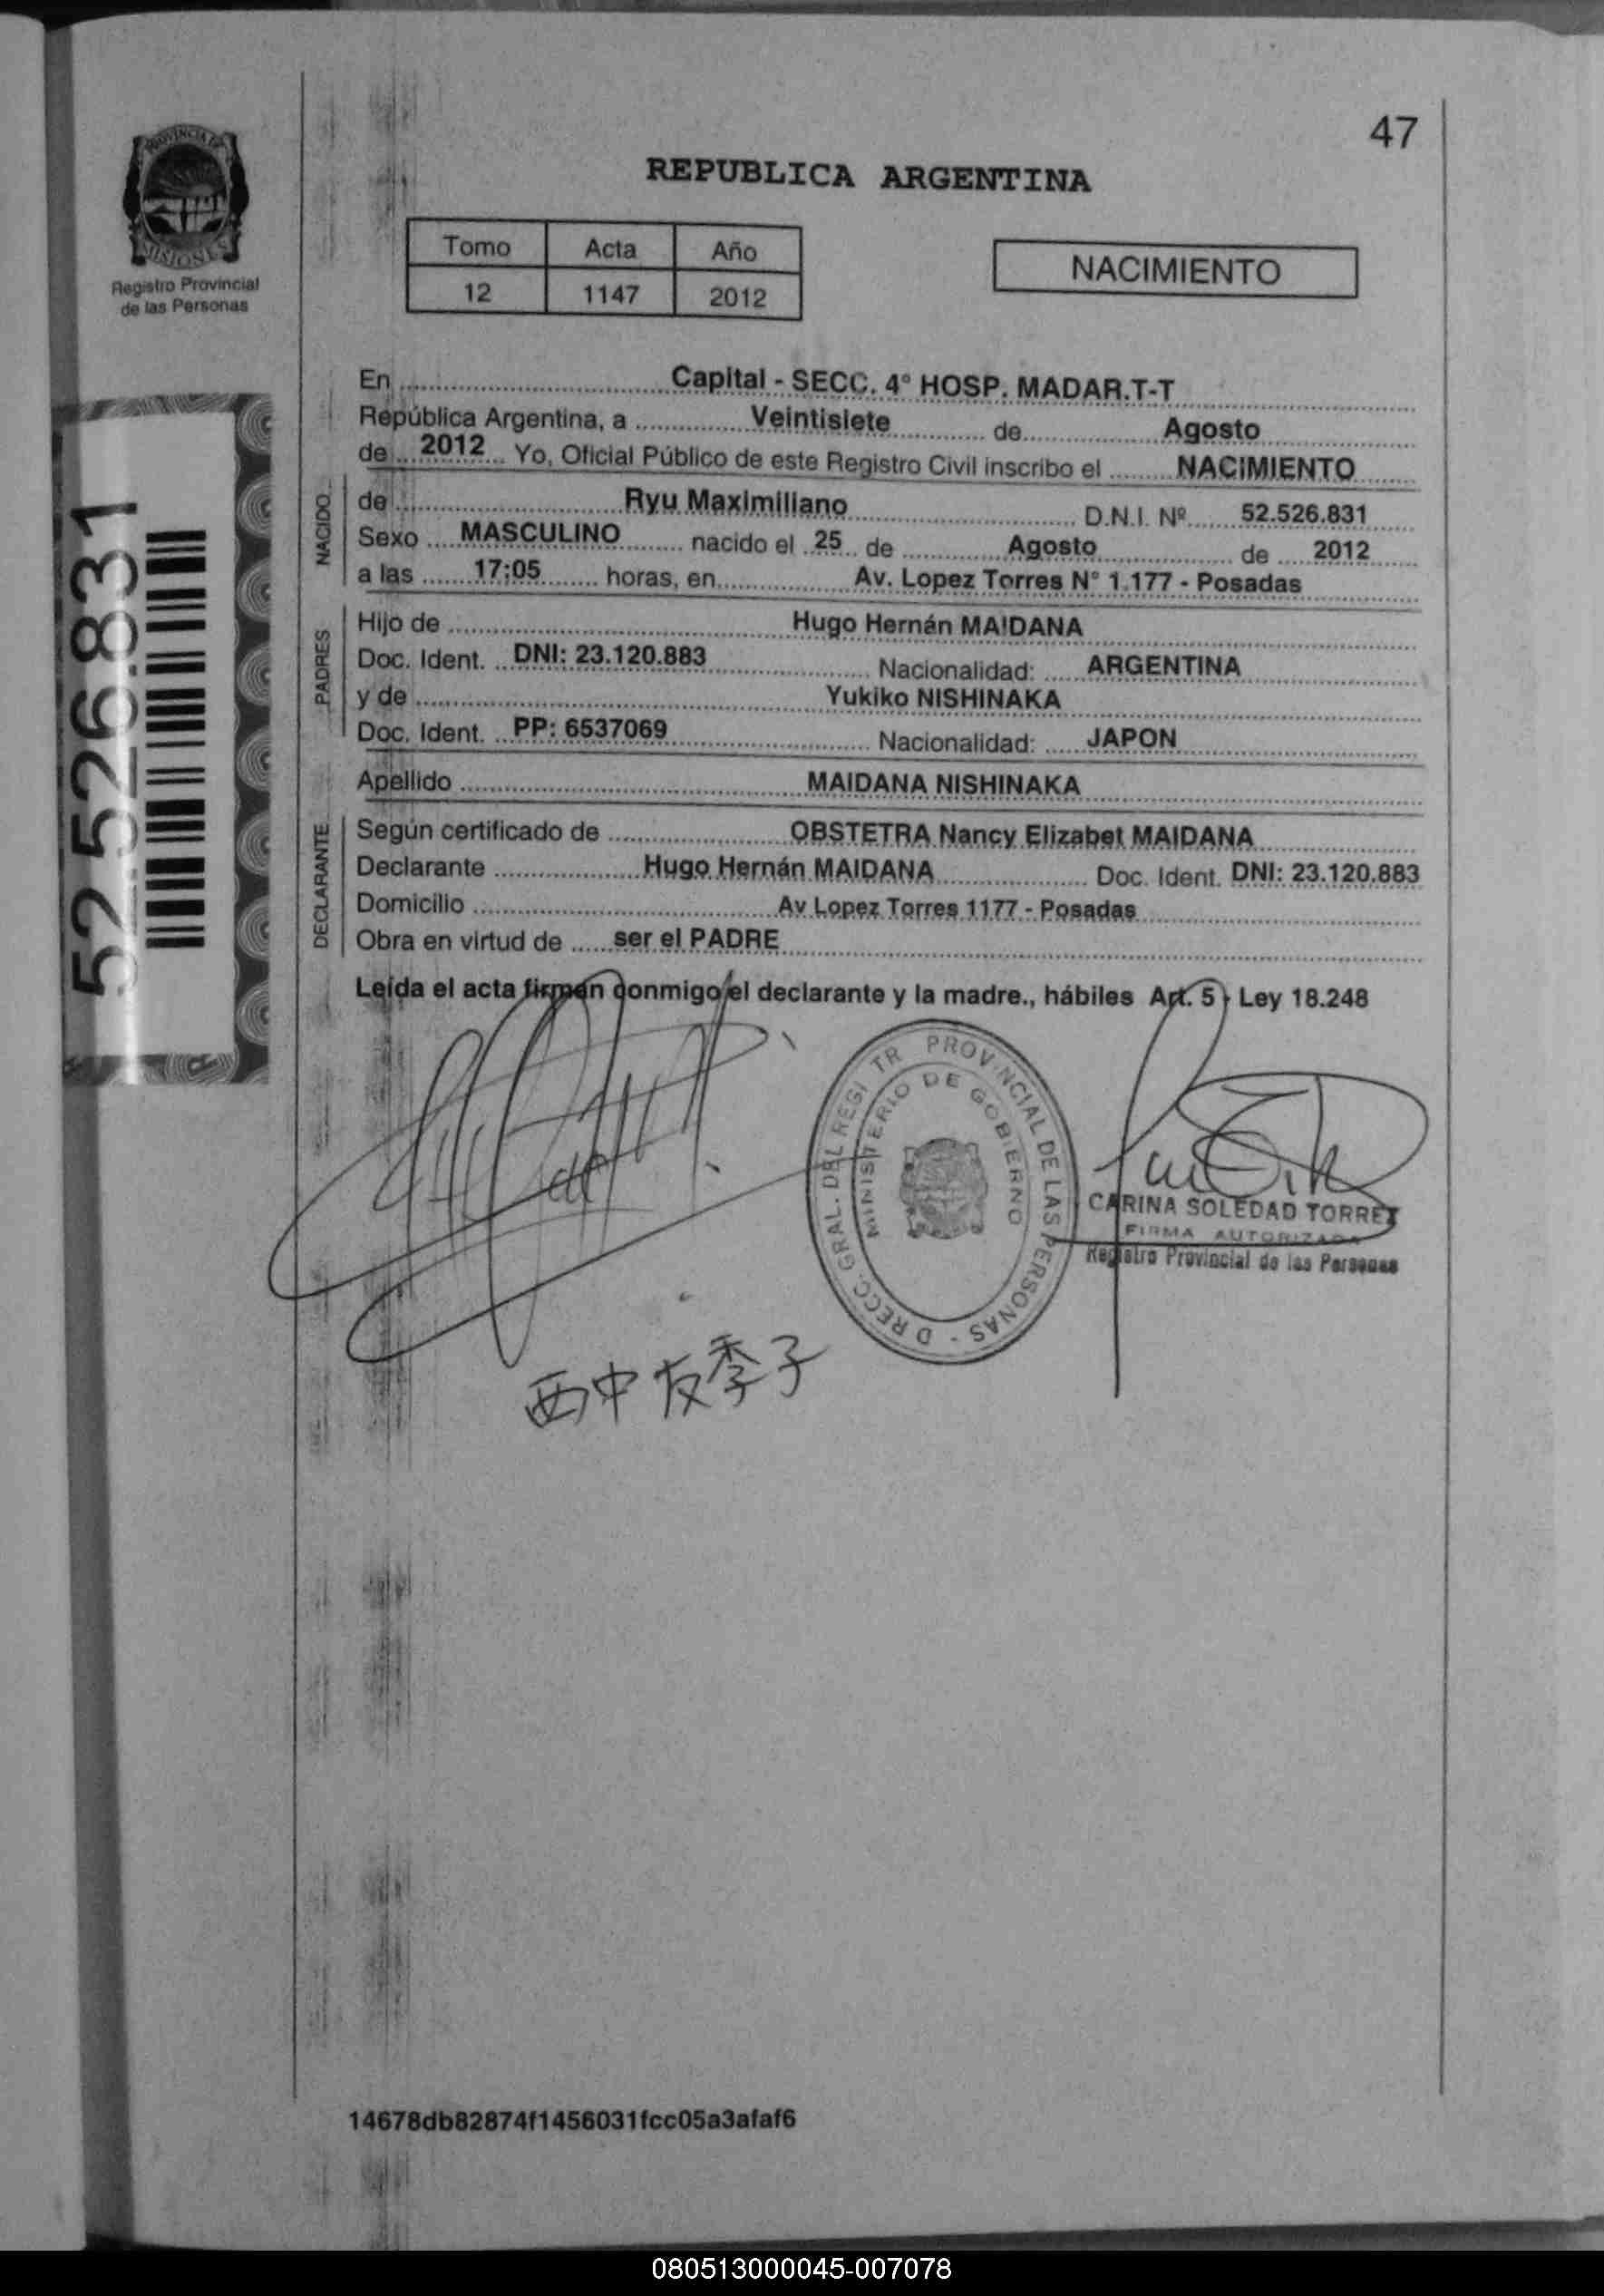 47
PROVINCIA DE
MISIONES
Registro Provincial
de las Personas
REPUBLICA ARGENTINA
Tomo Acta Año
12 1147 2012
NACIMIENTO
En Capital - SECC. 4° HOSP. MADAR.T-T
República Argentina, a Veintisiete de Agosto
de 2012 Yo, Oficial Público de este Registro Civil inscribo el NACIMIENTO
NACIDO
de Ryu Maximiliano D.N.I. Nº 52.526.831
Sexo MASCULINO nacido el 25 de Agosto de 2012
a las 17:05 horas, en Av. Lopez Torres N° 1.177 - Posadas
PADRES
Hijo de Hugo Hernán MAIDANA
Doc. Ident. DNI: 23.120.883 Nacionalidad: ARGENTINA
y de Yukiko NISHINAKA
Doc. Ident. PP: 6537069 Nacionalidad: JAPON
Apellido MAIDANA NISHINAKA
DECLARANTE
Según certificado de OBSTETRA Nancy Elizabet MAIDANA
Declarante Hugo Hernán MAIDANA Doc. Ident. DNI: 23.120.883
Domicilio Av Lopez Torres 1177 - Posadas
Obra en virtud de ser el PADRE
Leída el acta firman conmigo el declarante y la madre., hábiles Art. 5 - Ley 18.248
52.526.831
DRECC. GRAL. DEL REGI TR PROVINCIAL DE LAS PERSONAS -
MINISTERIO DE GOBIERNO
CARINA SOLEDAD TORREZ
FIRMA AUTORIZADA
Registro Provincial de las Personas
西中友季子
14678db82874f1456031fcc05a3afaf6
080513000045-007078